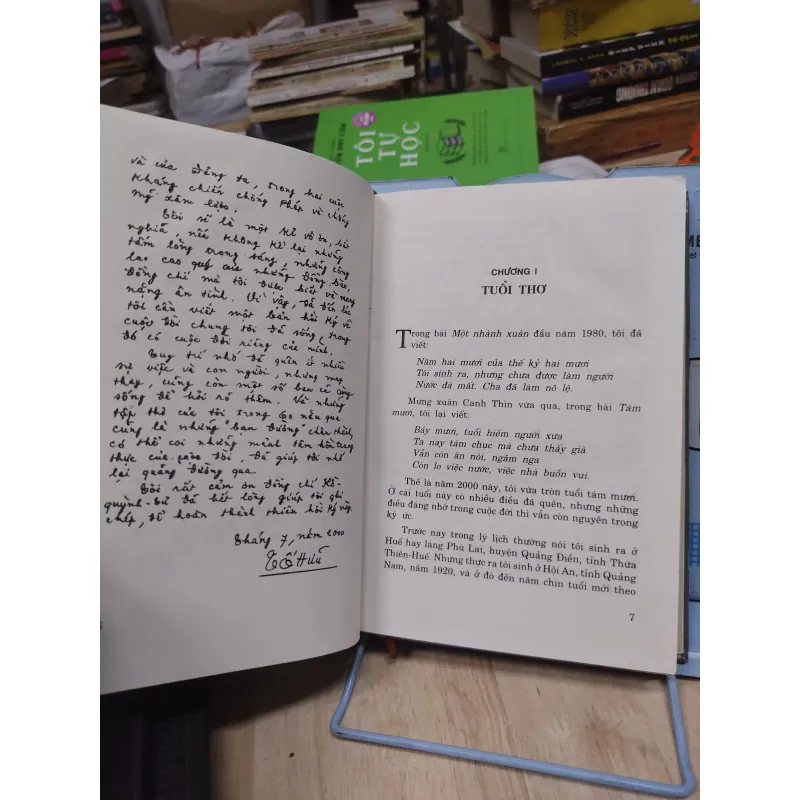 TÔI
TỰ
HỌC
và của Đảng ta, trong hai cuộc
kháng chiến chống Pháp và chống
Mỹ xâm lược.
Tôi sẽ là một kẻ vô ơn, bội
nghĩa, nếu không kể lại những
tấm lòng trong sáng, những công
lao cao quý của những đồng bào,
đồng chí mà tôi được biết và mang
nặng ân tình. Vì vậy, đã đến lúc
tôi cần viết một bản hồi ký về
cuộc đời chung tôi đã sống, trong
đó có cuộc đời riêng của mình.
Tuy trí nhớ đã quên ít nhiều
sự việc và con người, nhưng may
thay, cũng còn một số bạn cũ cùng
sống để hỏi rõ thêm. Và những
tập thơ của tôi trong 60 năm qua
cũng là những "bạn đường" chân thành,
có thể coi những mảnh tâm hồn trung
thực của cuộc đời, đã giúp tôi nhớ
lại quãng đường qua.
Tôi rất cảm ơn đồng chí Hà-
quỳnh- đã hết lòng giúp tôi ghi
chép, để hoàn thành thiên hồi ký này.
Tháng 7, năm 2000
Tố Hữu
CHƯƠNG I
TUỔI THƠ
Trong bài Một nhành xuân đầu năm 1980, tôi đã
viết:
Năm hai mươi của thế kỷ hai mươi
Tôi sinh ra, nhưng chưa được làm người
Nước đã mất. Cha đã làm nô lệ.
Mừng xuân Canh Thìn vừa qua, trong bài Tám
mươi, tôi lại viết:
Bảy mươi, tuổi hiếm người xưa
Ta nay tám chục mà chưa thấy già
Vẫn còn ăn nói, ngâm nga
Còn lo việc nước, việc nhà buồn vui.
Thế là năm 2000 này, tôi vừa tròn tuổi tám mươi.
Ở cái tuổi này có nhiều điều đã quên, nhưng những
điều đáng nhớ trong cuộc đời thì vẫn còn nguyên trong
ký ức.
Trước nay trong lý lịch thường nói tôi sinh ra ở
Huế hay làng Phù Lai, huyện Quảng Điền, tỉnh Thừa
Thiên-Huế. Nhưng thực ra tôi sinh ở Hội An, tỉnh Quảng
Nam, năm 1920, và ở đó đến năm chín tuổi mới theo
7